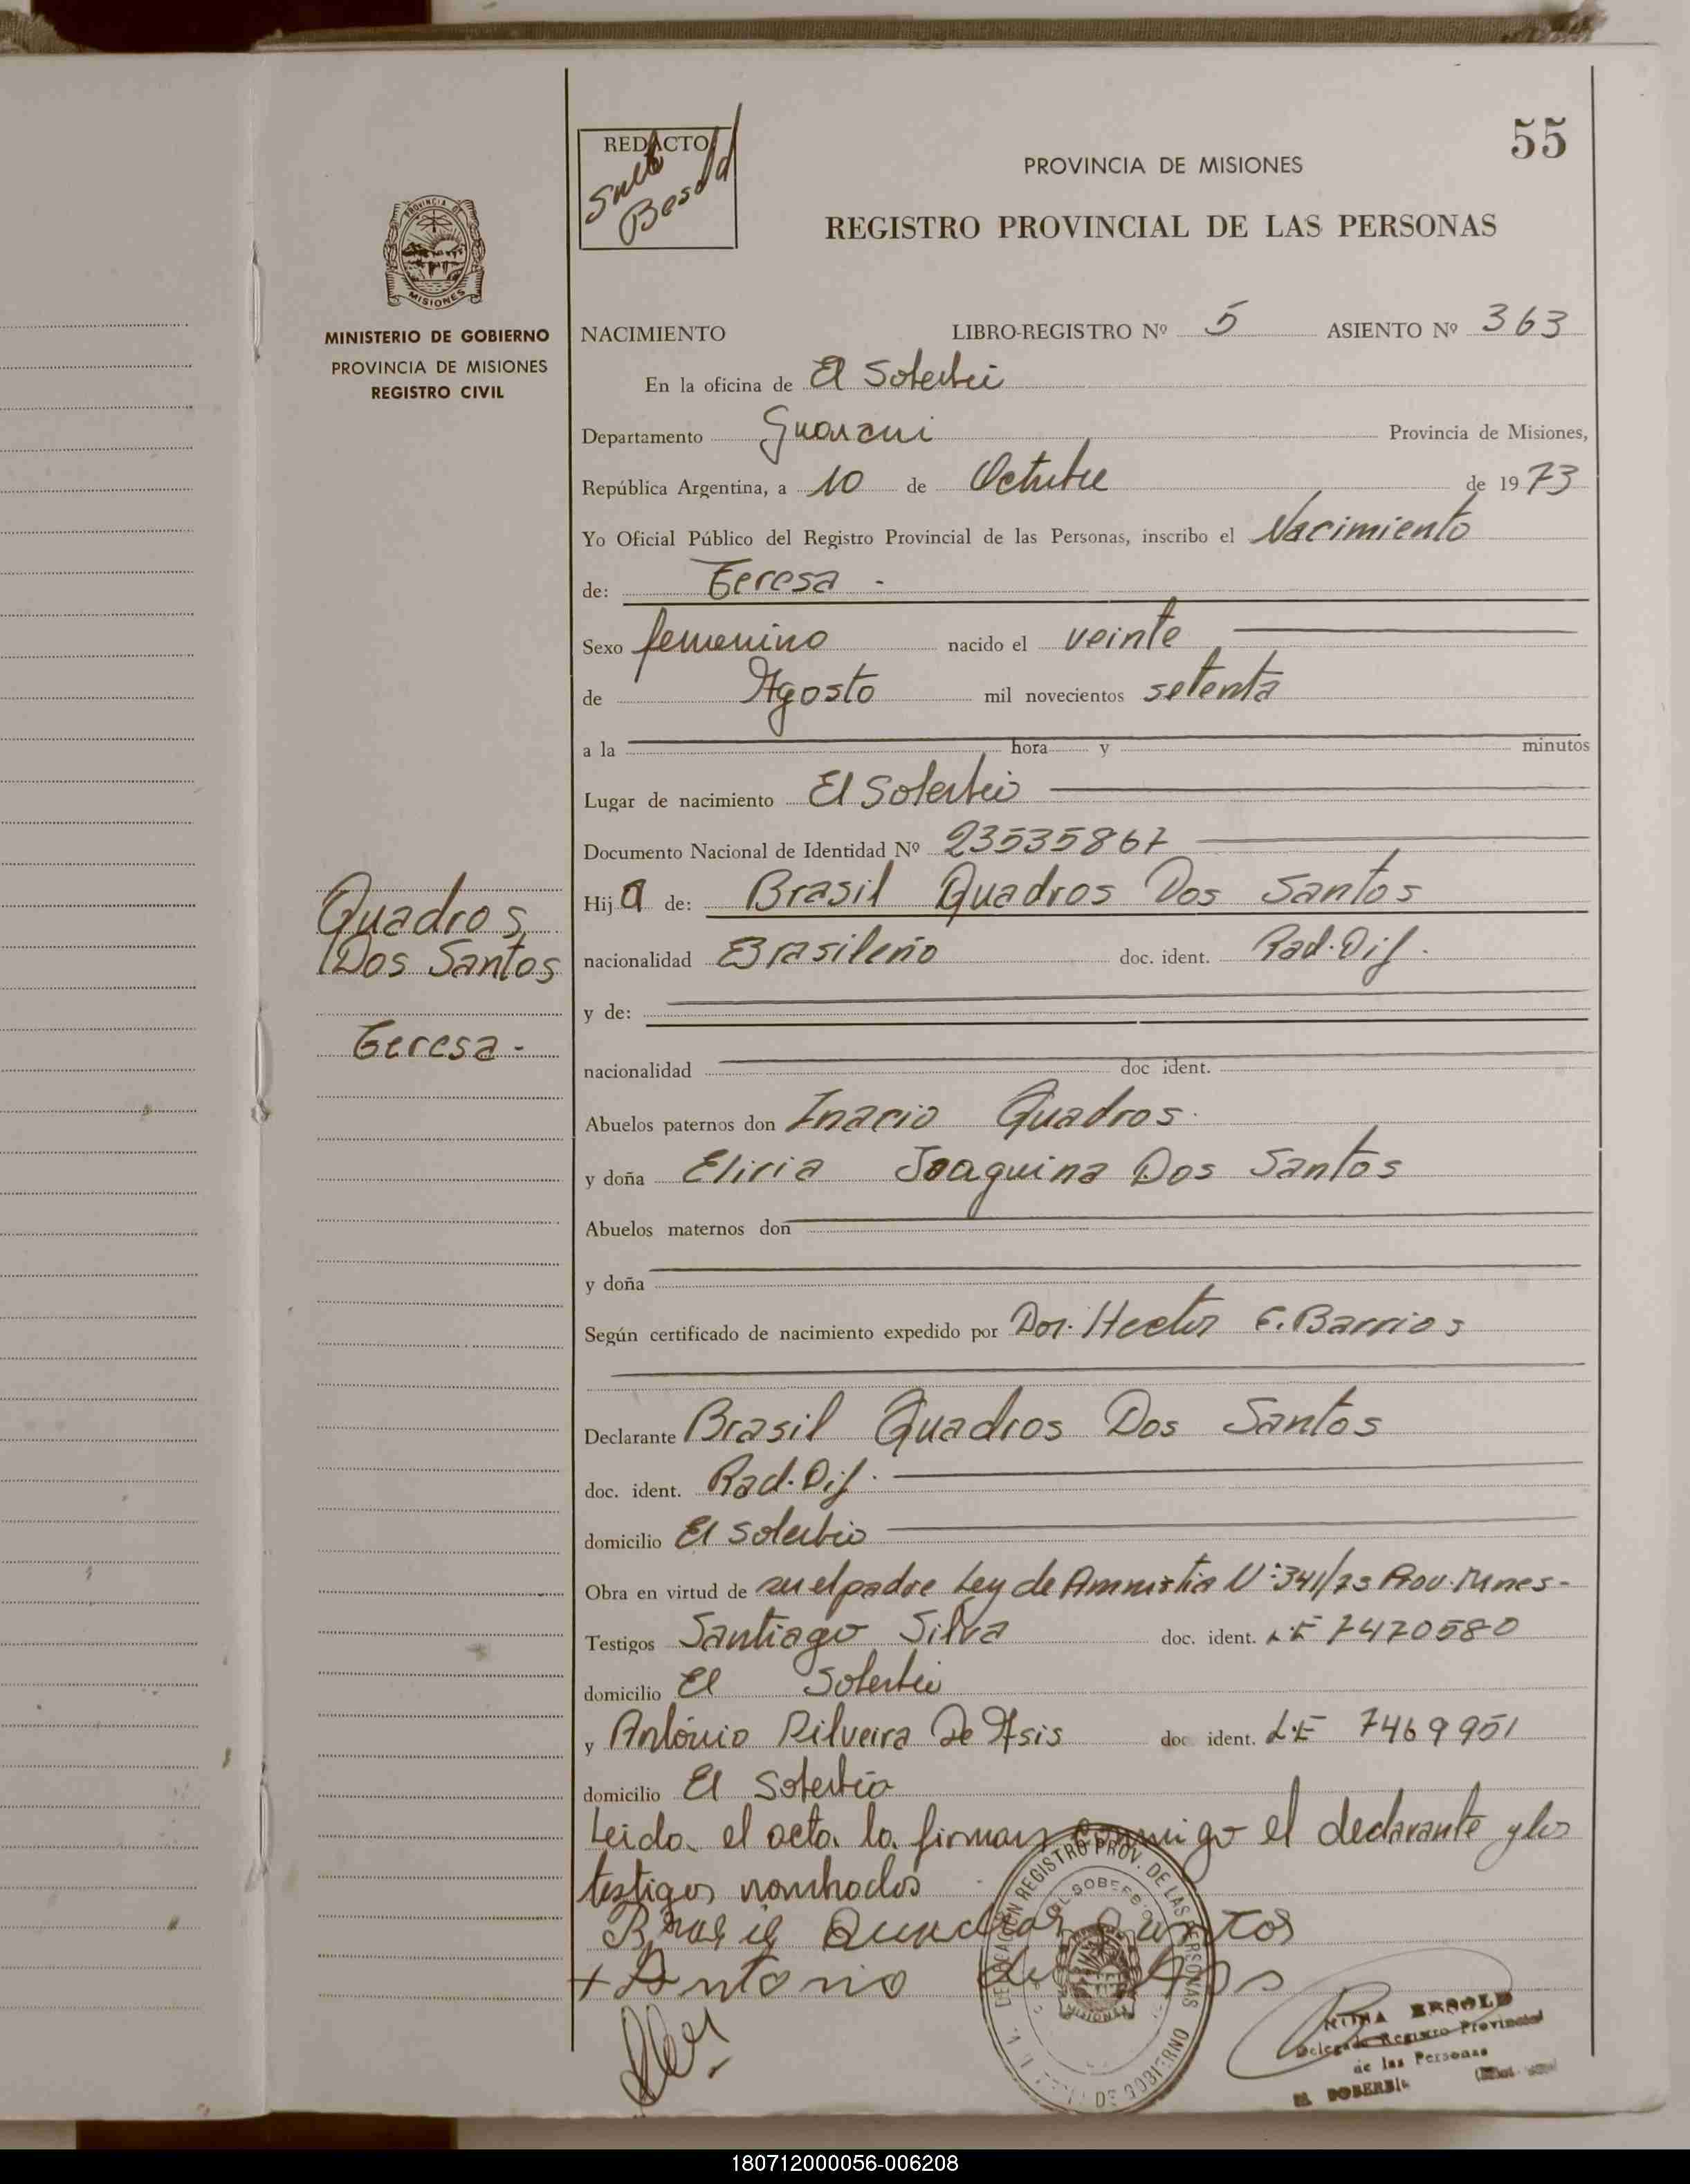 55
REDACTO
Besold
PROVINCIA DE MISIONES
REGISTRO PROVINCIAL DE LAS PERSONAS
PROVINCIA DE
MISIONES
MINISTERIO DE GOBIERNO
PROVINCIA DE MISIONES
REGISTRO CIVIL
NACIMIENTO LIBRO-REGISTRO Nº 5 ASIENTO Nº 363
En la oficina de El Soberbio
Departamento Guarani Provincia de Misiones,
República Argentina, a 10 de Octubre de 1973
Yo Oficial Público del Registro Provincial de las Personas, inscribo el Nacimiento
de: Teresa -
Sexo femenino nacido el veinte
de Agosto mil novecientos setenta
a la hora y minutos
Lugar de nacimiento El Soberbio
Documento Nacional de Identidad Nº 23535867
Hija de: Brasil Quadros Dos Santos
Quadros
Dos Santos
Teresa -
nacionalidad Brasileño doc. ident. Rad. Dif.
y de:
nacionalidad doc ident.
Abuelos paternos don Inacio Quadros
y doña Eliria Joaquina Dos Santos
Abuelos maternos don
y doña
Según certificado de nacimiento expedido por Dor. Hector E. Barrios
Declarante Brasil Quadros Dos Santos
doc. ident. Rad. Dif.
domicilio El Soberbio
Obra en virtud de ser el padre Ley de Amnistia N: 341/73 Prov. Mnes-
Testigos Santiago Silva doc. ident. L.E 7470580
domicilio El Soberbio
y António Silveira De Asis doc ident. L.E 7469951
domicilio El Soberbio
Leida el acta la firman conmigo el declarante y los
testigos nombrados
Brasil Quadros Santos
+ Antonio de Asis
DELEGACION REGISTRO PROV. DE LAS PERSONAS
EL SOBERBIO
MISIONES
DE GOBIERNO
BESOLD
Delegada Registro Provincial
de las Personas
EL SOBERBIO
180712000056-006208